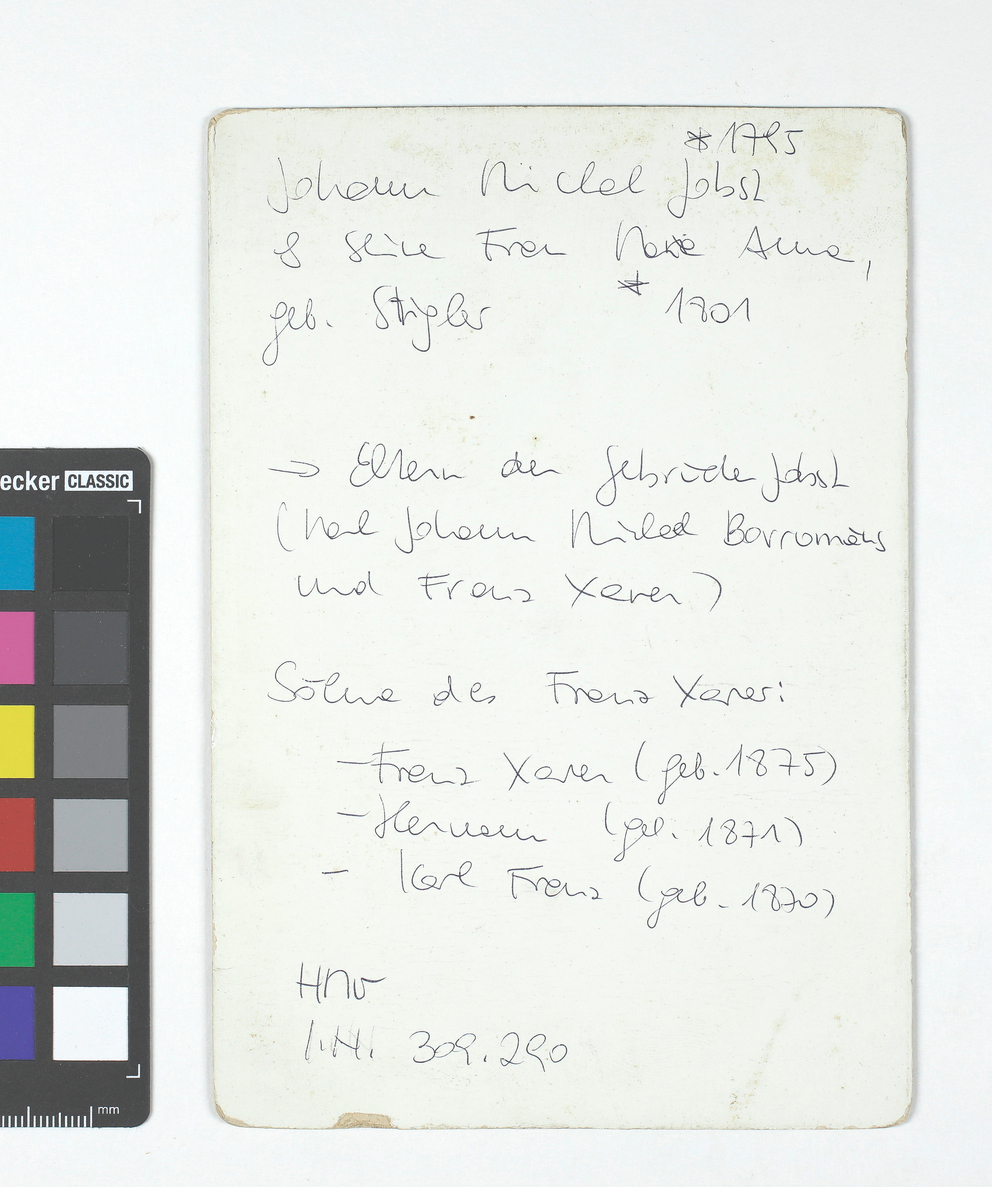 * 1795
Johann Michael Jobst
& seine Frau Maria Anna,
geb. Stigler * 1801
→ Eltern der Gebrüder Jobst
(Karl Johann Michael Borromäus
und Franz Xaver)
Söhne des Franz Xaver:
- Franz Xaver (geb. 1875)
- Hermann (geb. 1871)
- Karl Franz (geb. 1870)
HMW
I.N. 309.290
ecker CLASSIC
mm